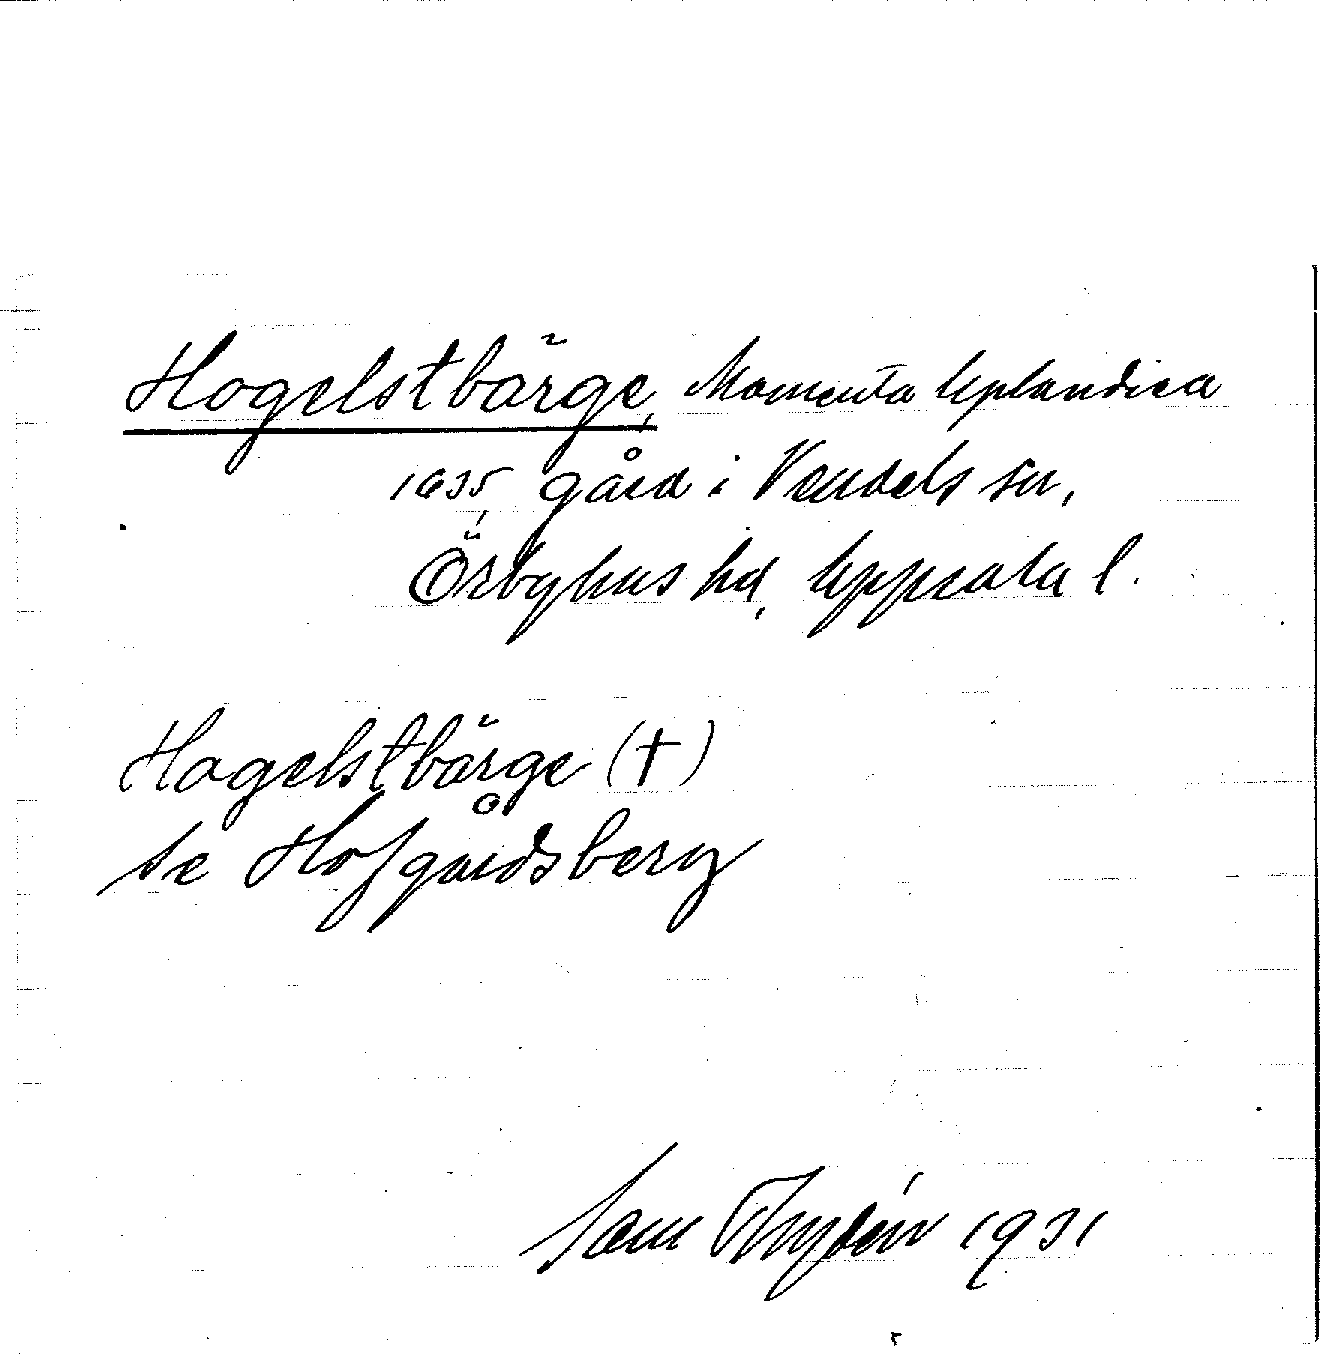 Hogelstbärge, Momenta Uplandica
1635, gård i Vendels sn,
Örbyhus hd, Uppsala l.
Hagelstbärge (†)
se Hofgårdsberg
Sam Thydén 1931